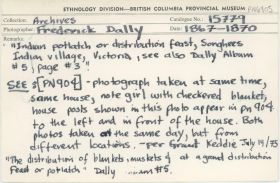 ETHNOLOGY DIVISION—BRITISH COLUMBIA PROVINCIAL MUSEUM PN6905
Collection: Archives Catalogue No.: 15779
Photographer: Frederick Dally Date: 1867-1870
Remarks:
"Indian potlatch or distribution feast, Songhees
Indian village, Victoria, see also Dally Album
#5; page #3!
SEE [PN904] - photograph taken at same time,
same house, note girl with checkered blanket,
house posts shown in this photo appear in pn 904
to the left and in front of the house. Both
photos taken at the same day, but from
different locations. - per Grant Keddie July 15/75
"The distribution of blankets, muskets of at a grand distribution
Feast or potlatch" Dally #5.